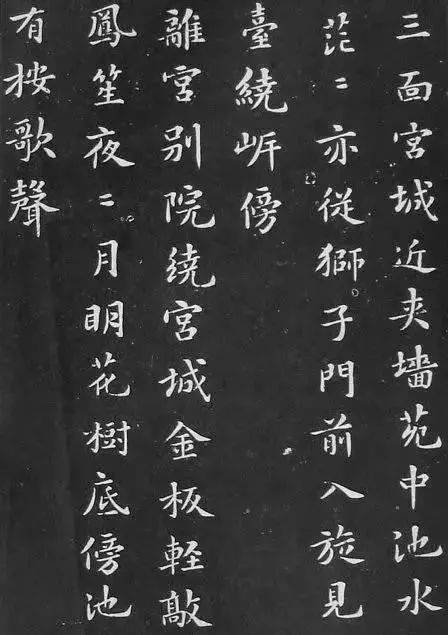 三面宮城近夾墻苑中池水
茫〻亦従獅子門前入旋見
臺繞岍傍
離宮别院繞宮城金板軽敲
鳳笙夜〻月明花樹底傍池
有按歌聲